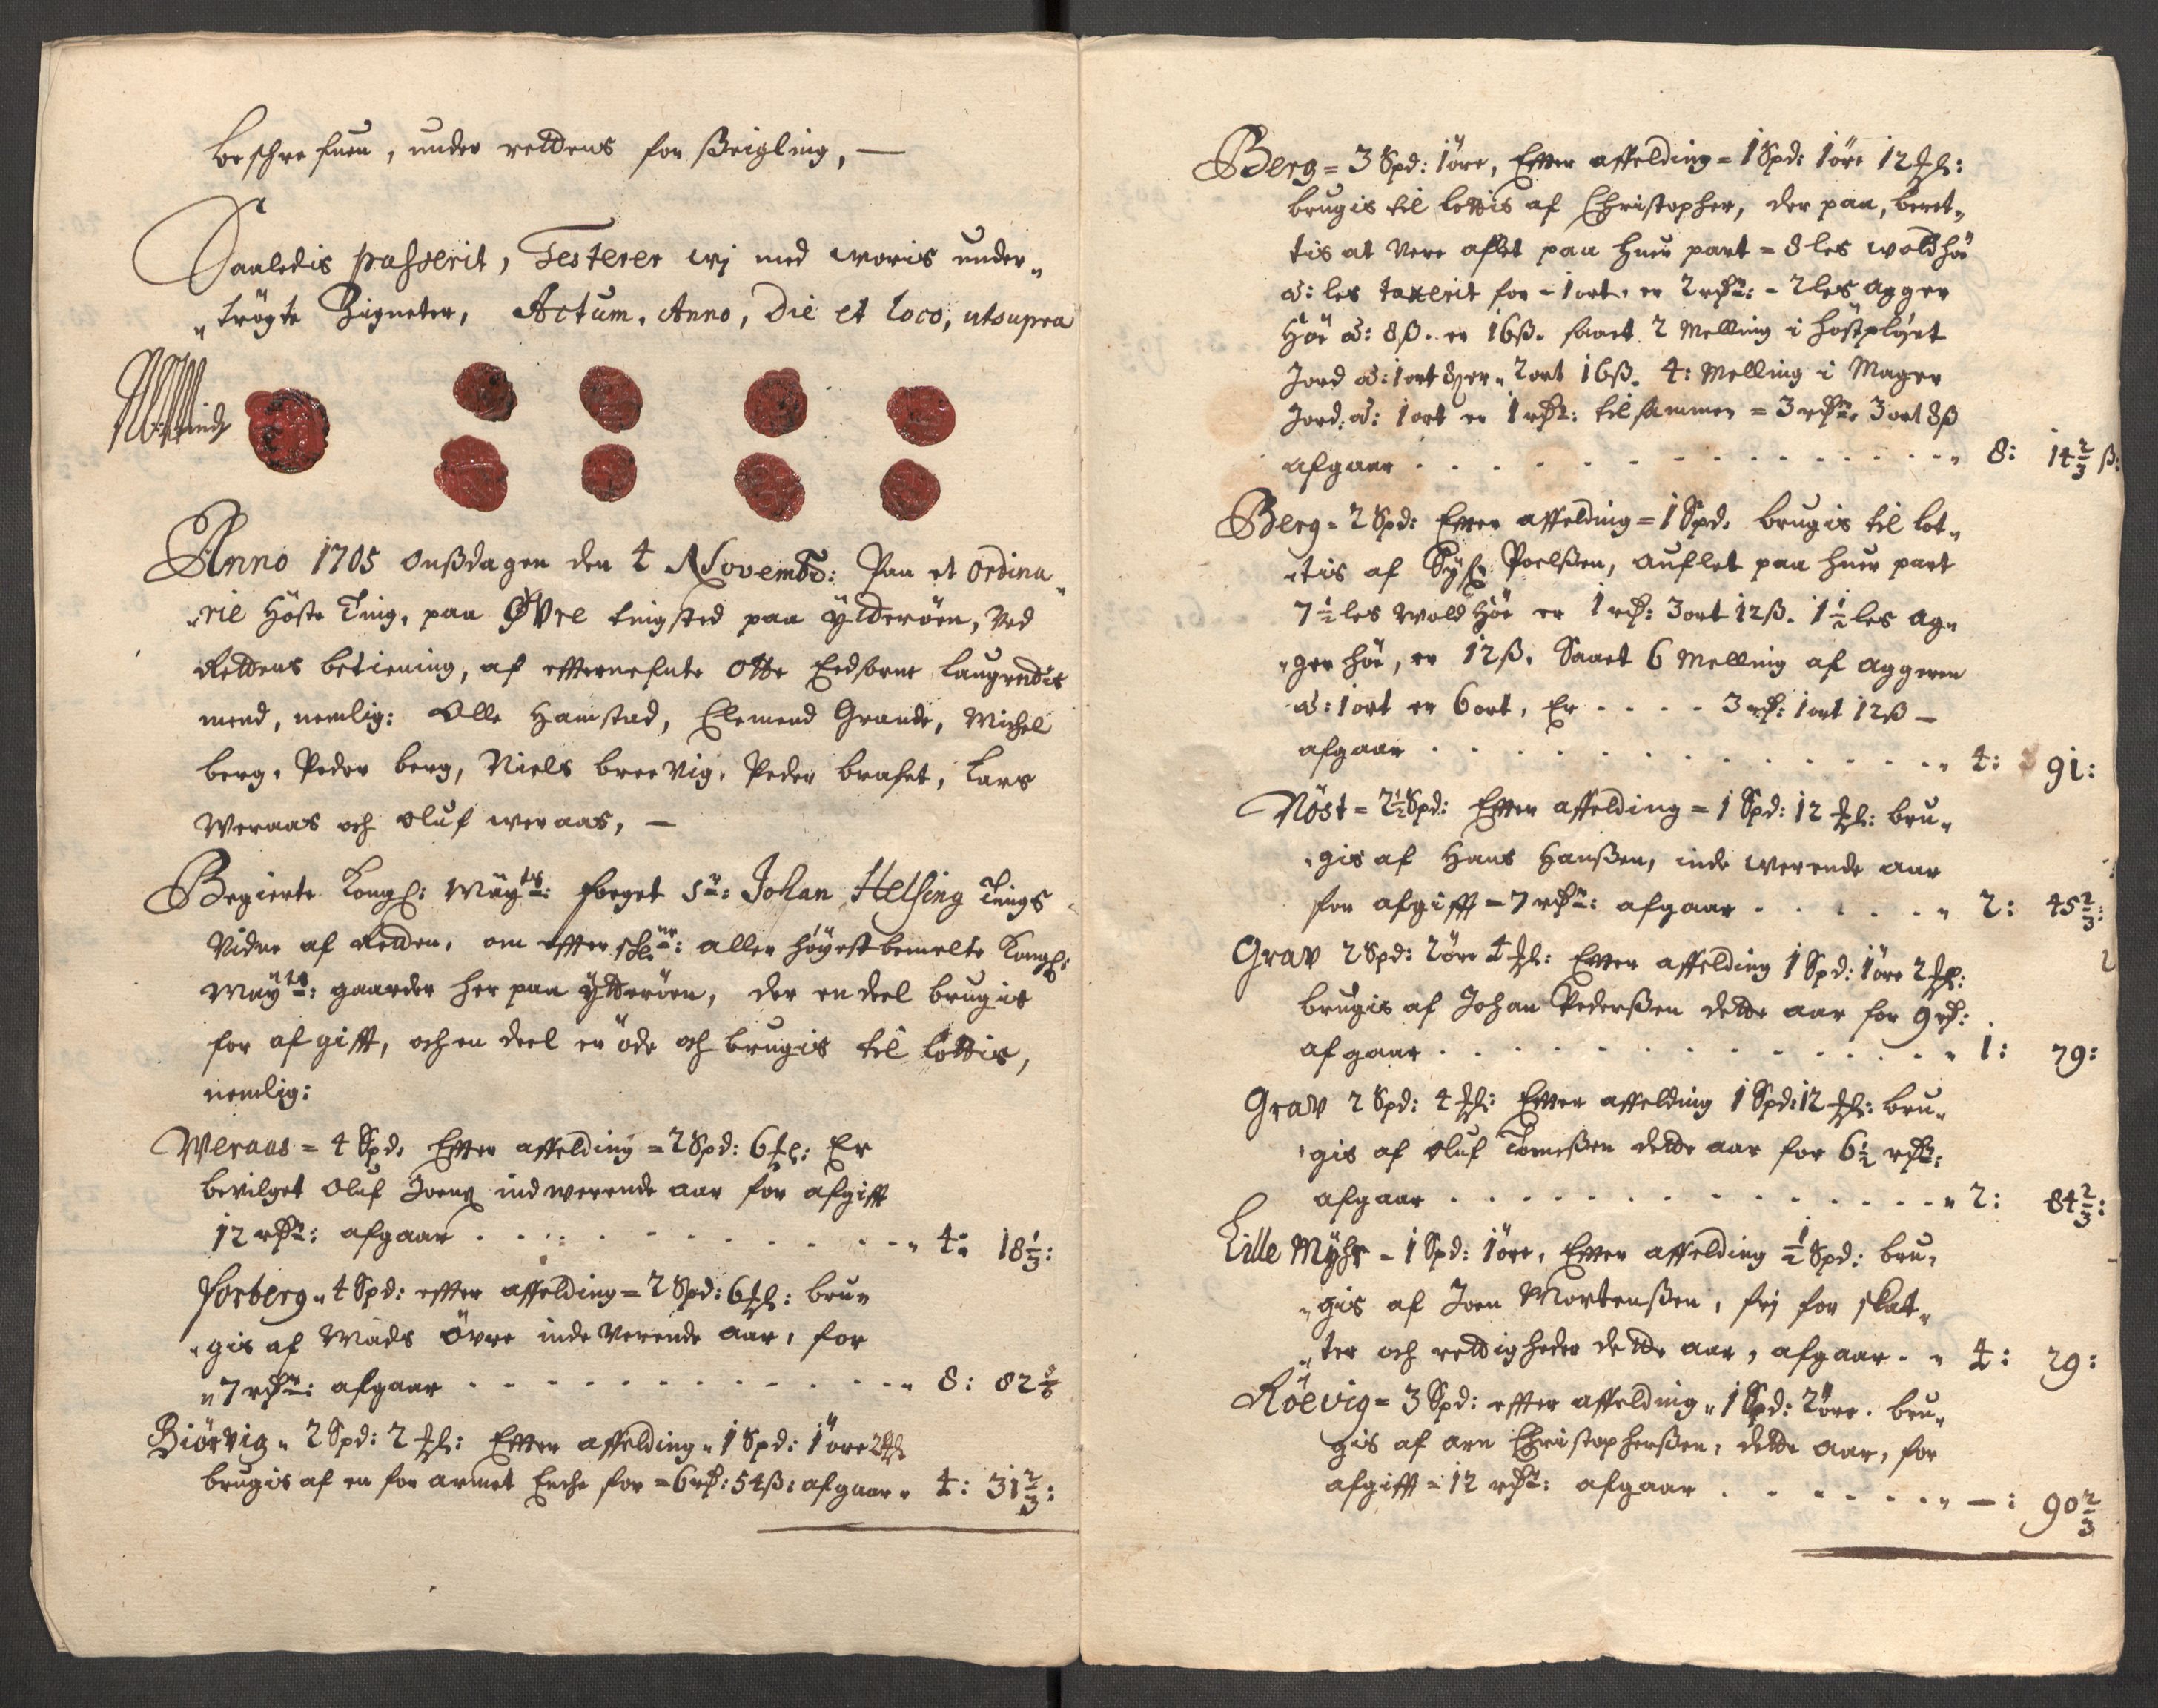 beschrefuen, under rettens forßeigling, —
Saaledis passerit, Testerer wj med woris under„
„trögte Zigneter, Actum, Anno, Die et loco, utsupra
Anno 1705 onßdagen den 4 Novembr: Paa et ordina„
„rie Höste Ting, paa Øvre tingsted paa ÿtterøen, Ved
Rettens betiening, af effternefnte Otte Eedsorne Laugrettis
mend, nemlig: Olle Hamstad, Elemend Grande, Michel
berg, Peder berg, Niels breevig, Peder brafet, Lars
Weraas och Oluf weraas, —
Begierte Kongl: Maÿts: foeget Sr: Johan Helsing Tings
Vidne af Retten, om effterschr: aller höyestbemelte Kongl:
Maÿts: gaarder her paa ÿtterøen, der en deel brugis
for afgifft, och en deel er öde och brugis til lottis,
nemlig:
Weraas = 4 Spd: Effter affelding = 2 Spd: 6 ₶l: Er
bevilget Oluf Joens: indwerende aar for afgifft
12 rdr: afgaar - - - „ 4: 18 1/3:
Forberg „ 4 Spd: effter affelding = 2 Spd: 6 ₶l: bru„
„gis af Mads Øvre indeverende aar, for
„7 rdr: afgaar - - - „ 8: 82
Biörvig „ 2 Spd: 2 ₶l: Effter affelding „ 1 Spd: 1 öre 2 ₶l
brugis af en forarmet Enche for = 6 rd: 54 ß: afgaar „ 4: 31 2/3:
Berg = 3 Spd: 1 öre, Effter affelding = 1 Spd: 1 öre 12 ₶l:
brugis til lottis af Christopher, der paa, beret„
tis at vere aflet paa huer part = 8 les woldhöe
á: les taxerit for - 1 ort, er 2 rdr: - 2 les Agger
Höe á: 8 ß. er 16 ß. saaet 2 Melling i höstpløyet
Jord á: 1 ort 8 ß er „ 2 ort 16 ß. 4: Melling i Mager
Jord, á: 1 ort er 1 rdr: tilsammen = 3 rdr: 3 ort 8 ß
afgaar - - - „ 8: 14 2/3 ß:
Berg = 2 Spd: Effter affelding = 1 Spd. brugis til lot„
„tis af Poelßen, auflet paa huer part
7 1/2 les Wold Höe er 1 rd: 3 ort 12 ß. 1 1/2 les Ag„
„ger höe, er 12 ß. Saaet 6 Melling af aggeren
á: 1 ort er 6 ort, Er - - - - 3 rd: 1 ort 12 ß —
afgaar - - - „ 4: 91:
Nöst = 2 1/2 Spd: Effter affelding = 1 Spd: 12 ₶l: bru„
„gis af Hans Hanßen, inde werende aar
for afgifft = 7 rdr: afgaar - - - „ 2: 45 2/3:
Grav 2 Spd: 2 öre 4 ₶l: Effter affelding 1 Spd: 1 öre 2 ₶l:
brugis af Johan Pederßen dette aar for 9 rd:
afgaar - - - „ 1: 79:
Grav 2 Spd: 4 ₶l: Effter affelding 1 Spd: 12 ₶l: bru„
„gis af Oluf Tomeßen dette aar for 6 1/2 rdr:
afgaar - - - „ 2: 84 2/3:
Lille Mÿhr - 1 Spd: 1 öre, Effter affelding 1/2 Spd: bru„
„gis af Joen Mortenßen, frj for skat„
„ter och rettigheder dette aar, afgaar - „ 4: 29:
Röevig = 3 Spd: effter affelding „ 1 Spd: 2 öre. bru„
gis af Arn Christopherßen, dette aar, for
afgifft = 12 rdr: afgaar - - - „ —: 90 2/3